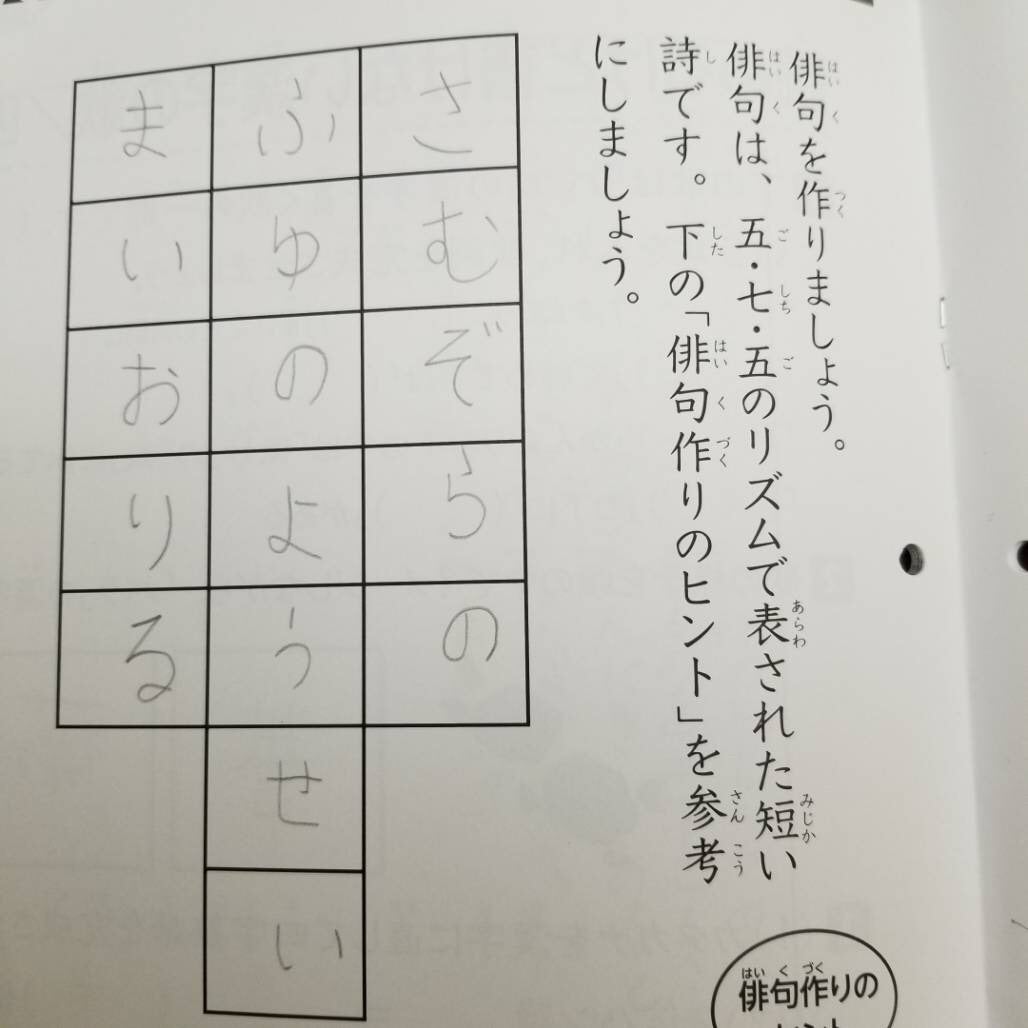 俳句を作りましょう。
俳句は、五・七・五のリズムで表された短い
詩です。下の「俳句作りのヒント」を参考
にしましょう。
さむぞらの
ふゆのようせい
まいおりる
俳句作りの